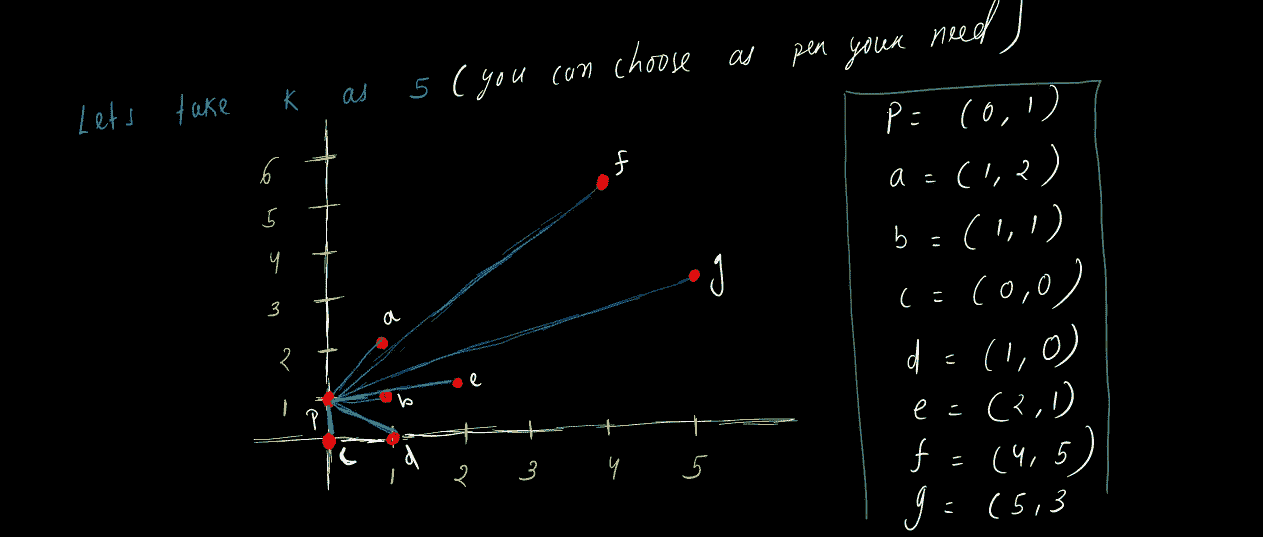 Lets take K as 5 (you can choose as per your need)
6
5
4
3
2
1
f
g
a
e
b
P
c
d
1
2
3
4
5
P = (0, 1)
a = (1, 2)
b = (1, 1)
c = (0, 0)
d = (1, 0)
e = (2, 1)
f = (4, 5)
g = (5, 3